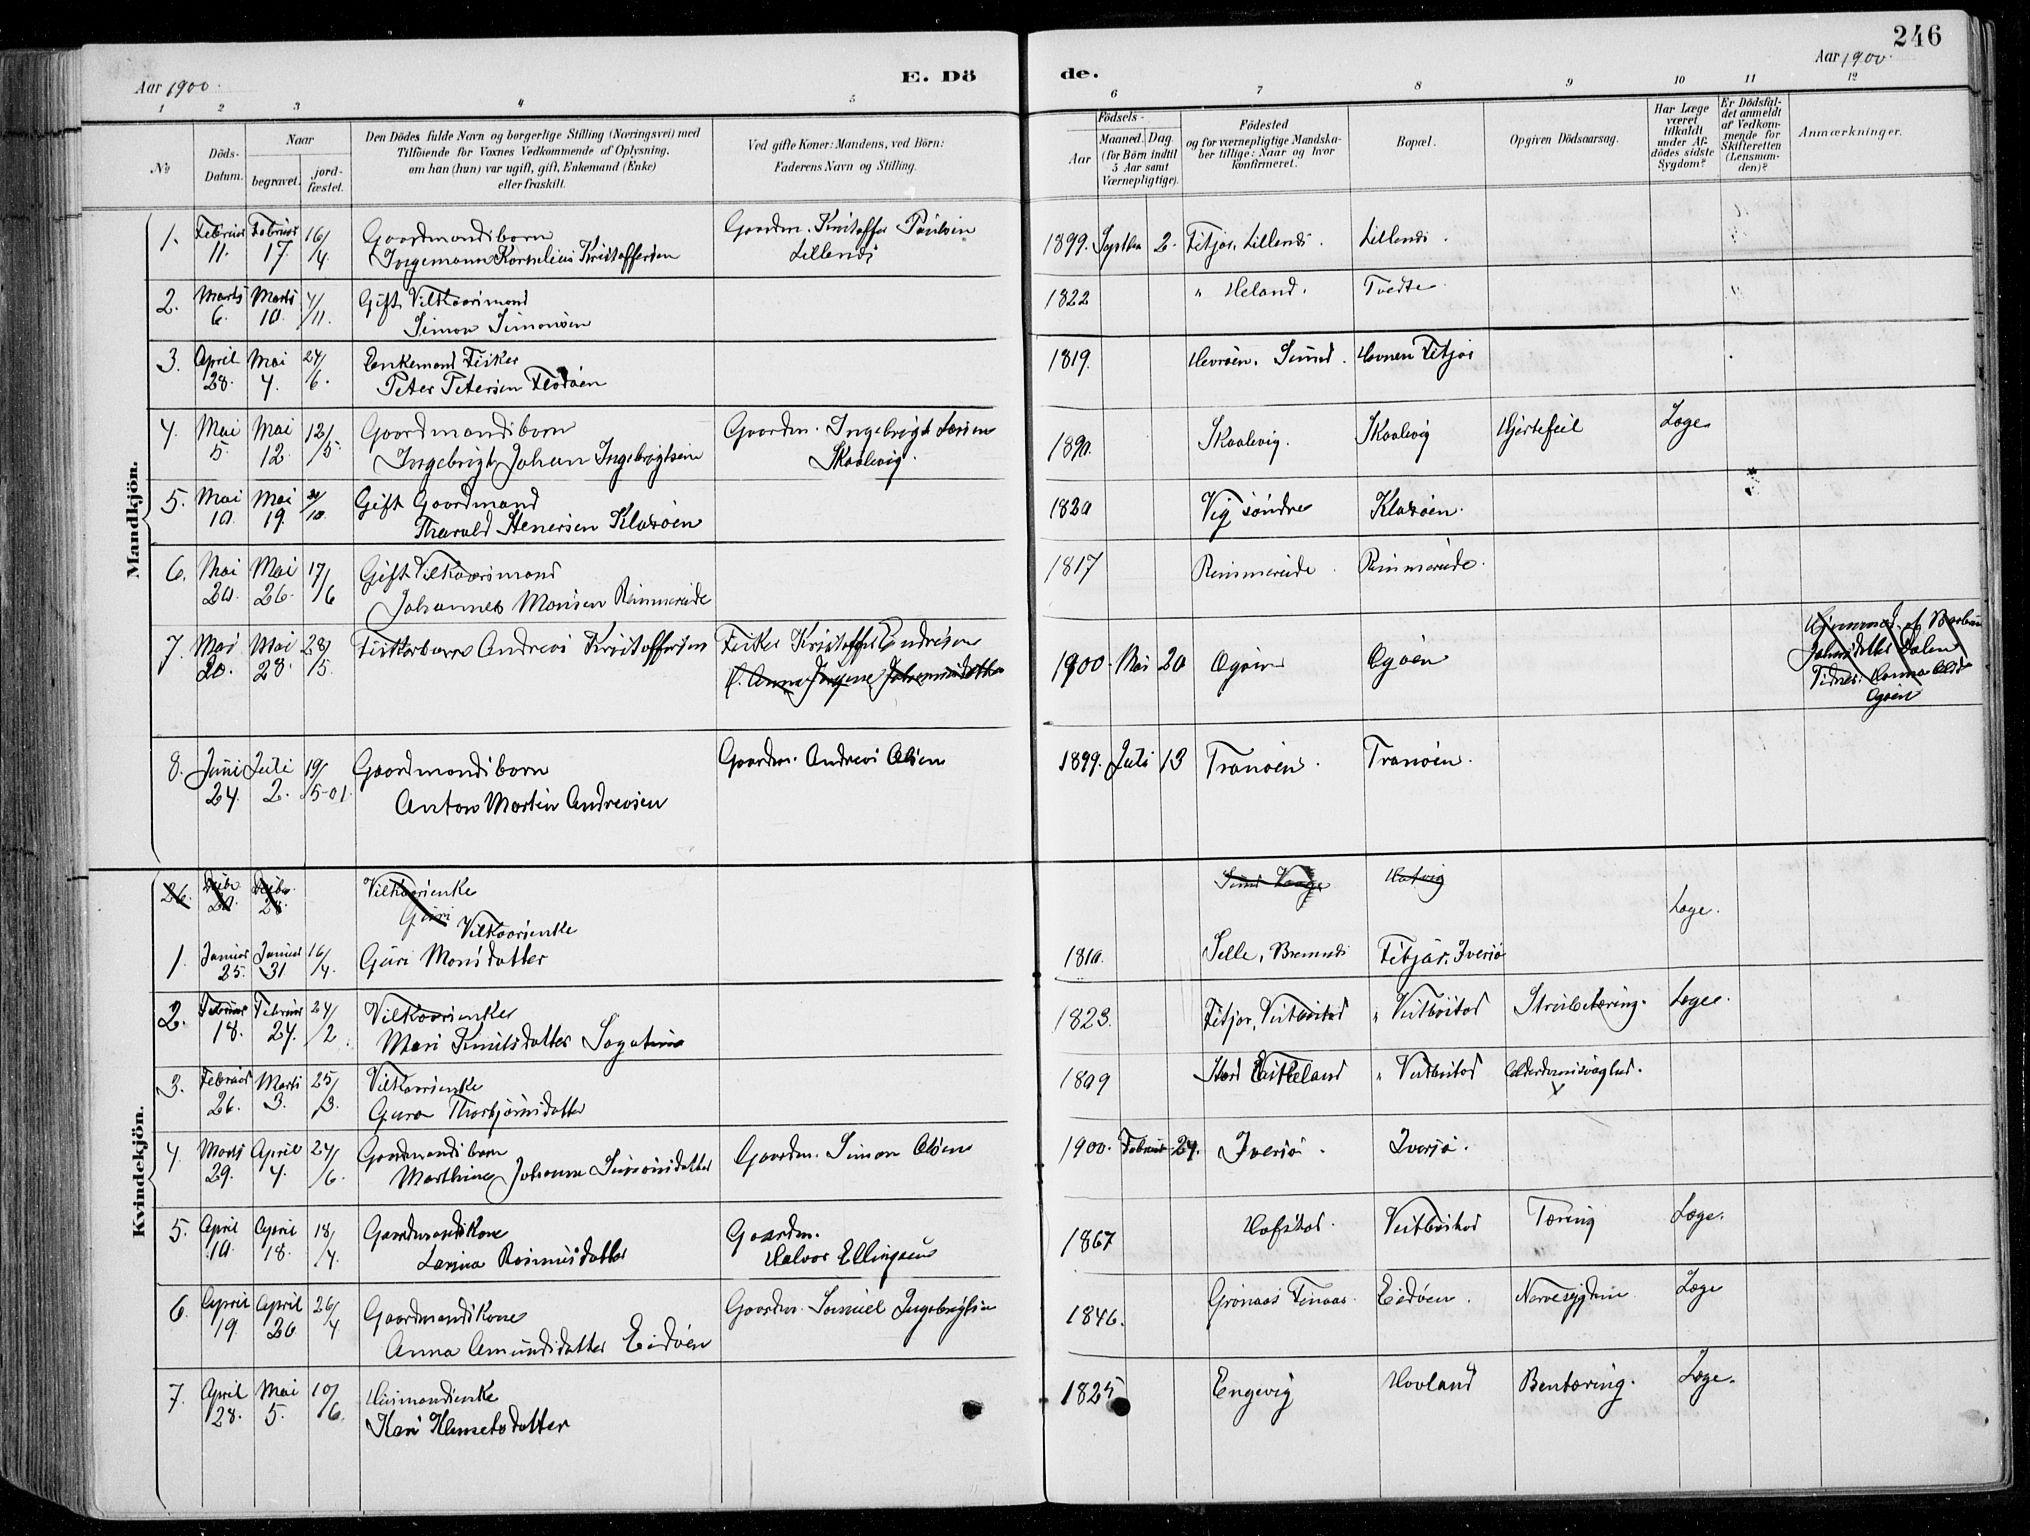 246
Aar 1900.
E. Dö
de.
Aar 1900.
1 2 3 4 5 6 7 8 9 10 11 12
No
Döds-Datum.
Naar
begravet.
jord-fæstet.
Den Dödes fulde Navn og borgerlige Stilling (Næringsvei) med
Tilföiende for Voxnes Vedkommende af Oplysning,
om han (hun) var ugift, gift, Enkemand (Enke)
eller fraskilt.
Ved gifte Koner: Mandens, ved Börn:
Faderens Navn og Stilling.
Födsels-
Aar
Maaned. Dag.
(for Börn indtil
5 Aar samt
Værnepligtige).
Födested
og for værnepligtige Mandska-
ber tillige: Naar og hvor
konfirmeret.
Bopæl.
Opgiven Dödsaarsag.
Har Læge
været
tilkaldt
under Af-
dödes sidste
Sygdom?
Er Dödsfal-
det anmeldt
af Vedkom-
mende for
Skifteretten
(Lensman-
den)?
Anmærkninger.
Mandkjön.
1. Februar 11. Februar 17. 16/4 Gaardmandsbarn Gaardm. Kristoffer Paulsen 1899. Septbr 2. Fitjar, Lillends. Lillends.
Ingemann Kornelius Kristoffersen Lillends
2. Marts 6. Marts 10. 4/11. Gift Vilkaarsmand 1822 " Heland. Tvedte
Simon Simonsen
3. April 28. Mai 4. 24/6. Enkemand Fisker 1819. Sund. Havnen Fitjar
Peter Petersen
4. Mai 5. Mai 12. 12/5. Gaardmandsbarn Gaardm. Ingebrigt Larsen 1890. Skaalevig. Skaalevig Hjertefeil Læge
Ingebrigt Johan Ingebrigtsen Skaalevig.
5. Mai 10. Mai 19. Gift Gaardmand 1820 Vig söndre
Tharald
6. Mai 20. Mai 26. 17/6 Gift Vilkaarsmand 1817 Rimmereide. Rimmereide.
Johannes Monsen Rimmereide
7. Mai 20. Mai 28. 28/5. Fiskerbarn Andreas Kristoffersen Fisker Kristoffer Andresen 1900 Mai 20 Agöen Agöen
Johannesdatter Dalen
Agöen
8. Juni 24. Juli 2. 19/5-01. Gaardmandsbarn Gaardm. Andreas Olsen 1899. Juli 13 Tranöen. Tranöen.
Anton Martin Andreasen
Kvindekjön.
26. Decbr. 20. Decbr. 28. Vilkaarsenke
Guri Vilkaarsenke Læge.
1. Januar 25. Januar 31 16/4. Guri Monsdatter 1810. Selle, Bremnæs Fitjar, Iversø
2. Februar 18. Februar 24. 24/2. Vilkaarsenke 1823. Fitjar, Vestbøstad " Vestbøstad Læge.
Mari Knutsdatter
3. Februar 26. Marts 3. 25/3. Vilkaarsenke 1809 Stord " Vestbøstad Alderdomssvaghed.
Guro Thorbjørnsdatter
4. Marts 29. April 4. 24/6. Gaardmandsbarn Gaardm. Simon Olsen 1900. Februar 24. Iversø. Iversø.
Marthine Johanne Simonsdatter
5. April 10. April 18. 18/4. Gaardmandskone Gaardm. 1867 Hofstad. Vestbøstad Tæring Læge.
Larina Rasmusdatter Halvor Ellingsen
6. April 19. April 26 26/4. Gaardmandskone Gaardm. Samuel Ingebrigtsen 1846. Grönaas Finaas. Eidøen. Nervesygdom Læge
Anna Amundsdatter Eidøen
7. April 28. Mai 5. 10/6. Husmandsenke 1825 Engevig Hovland Bentæring. Læge.
Kari